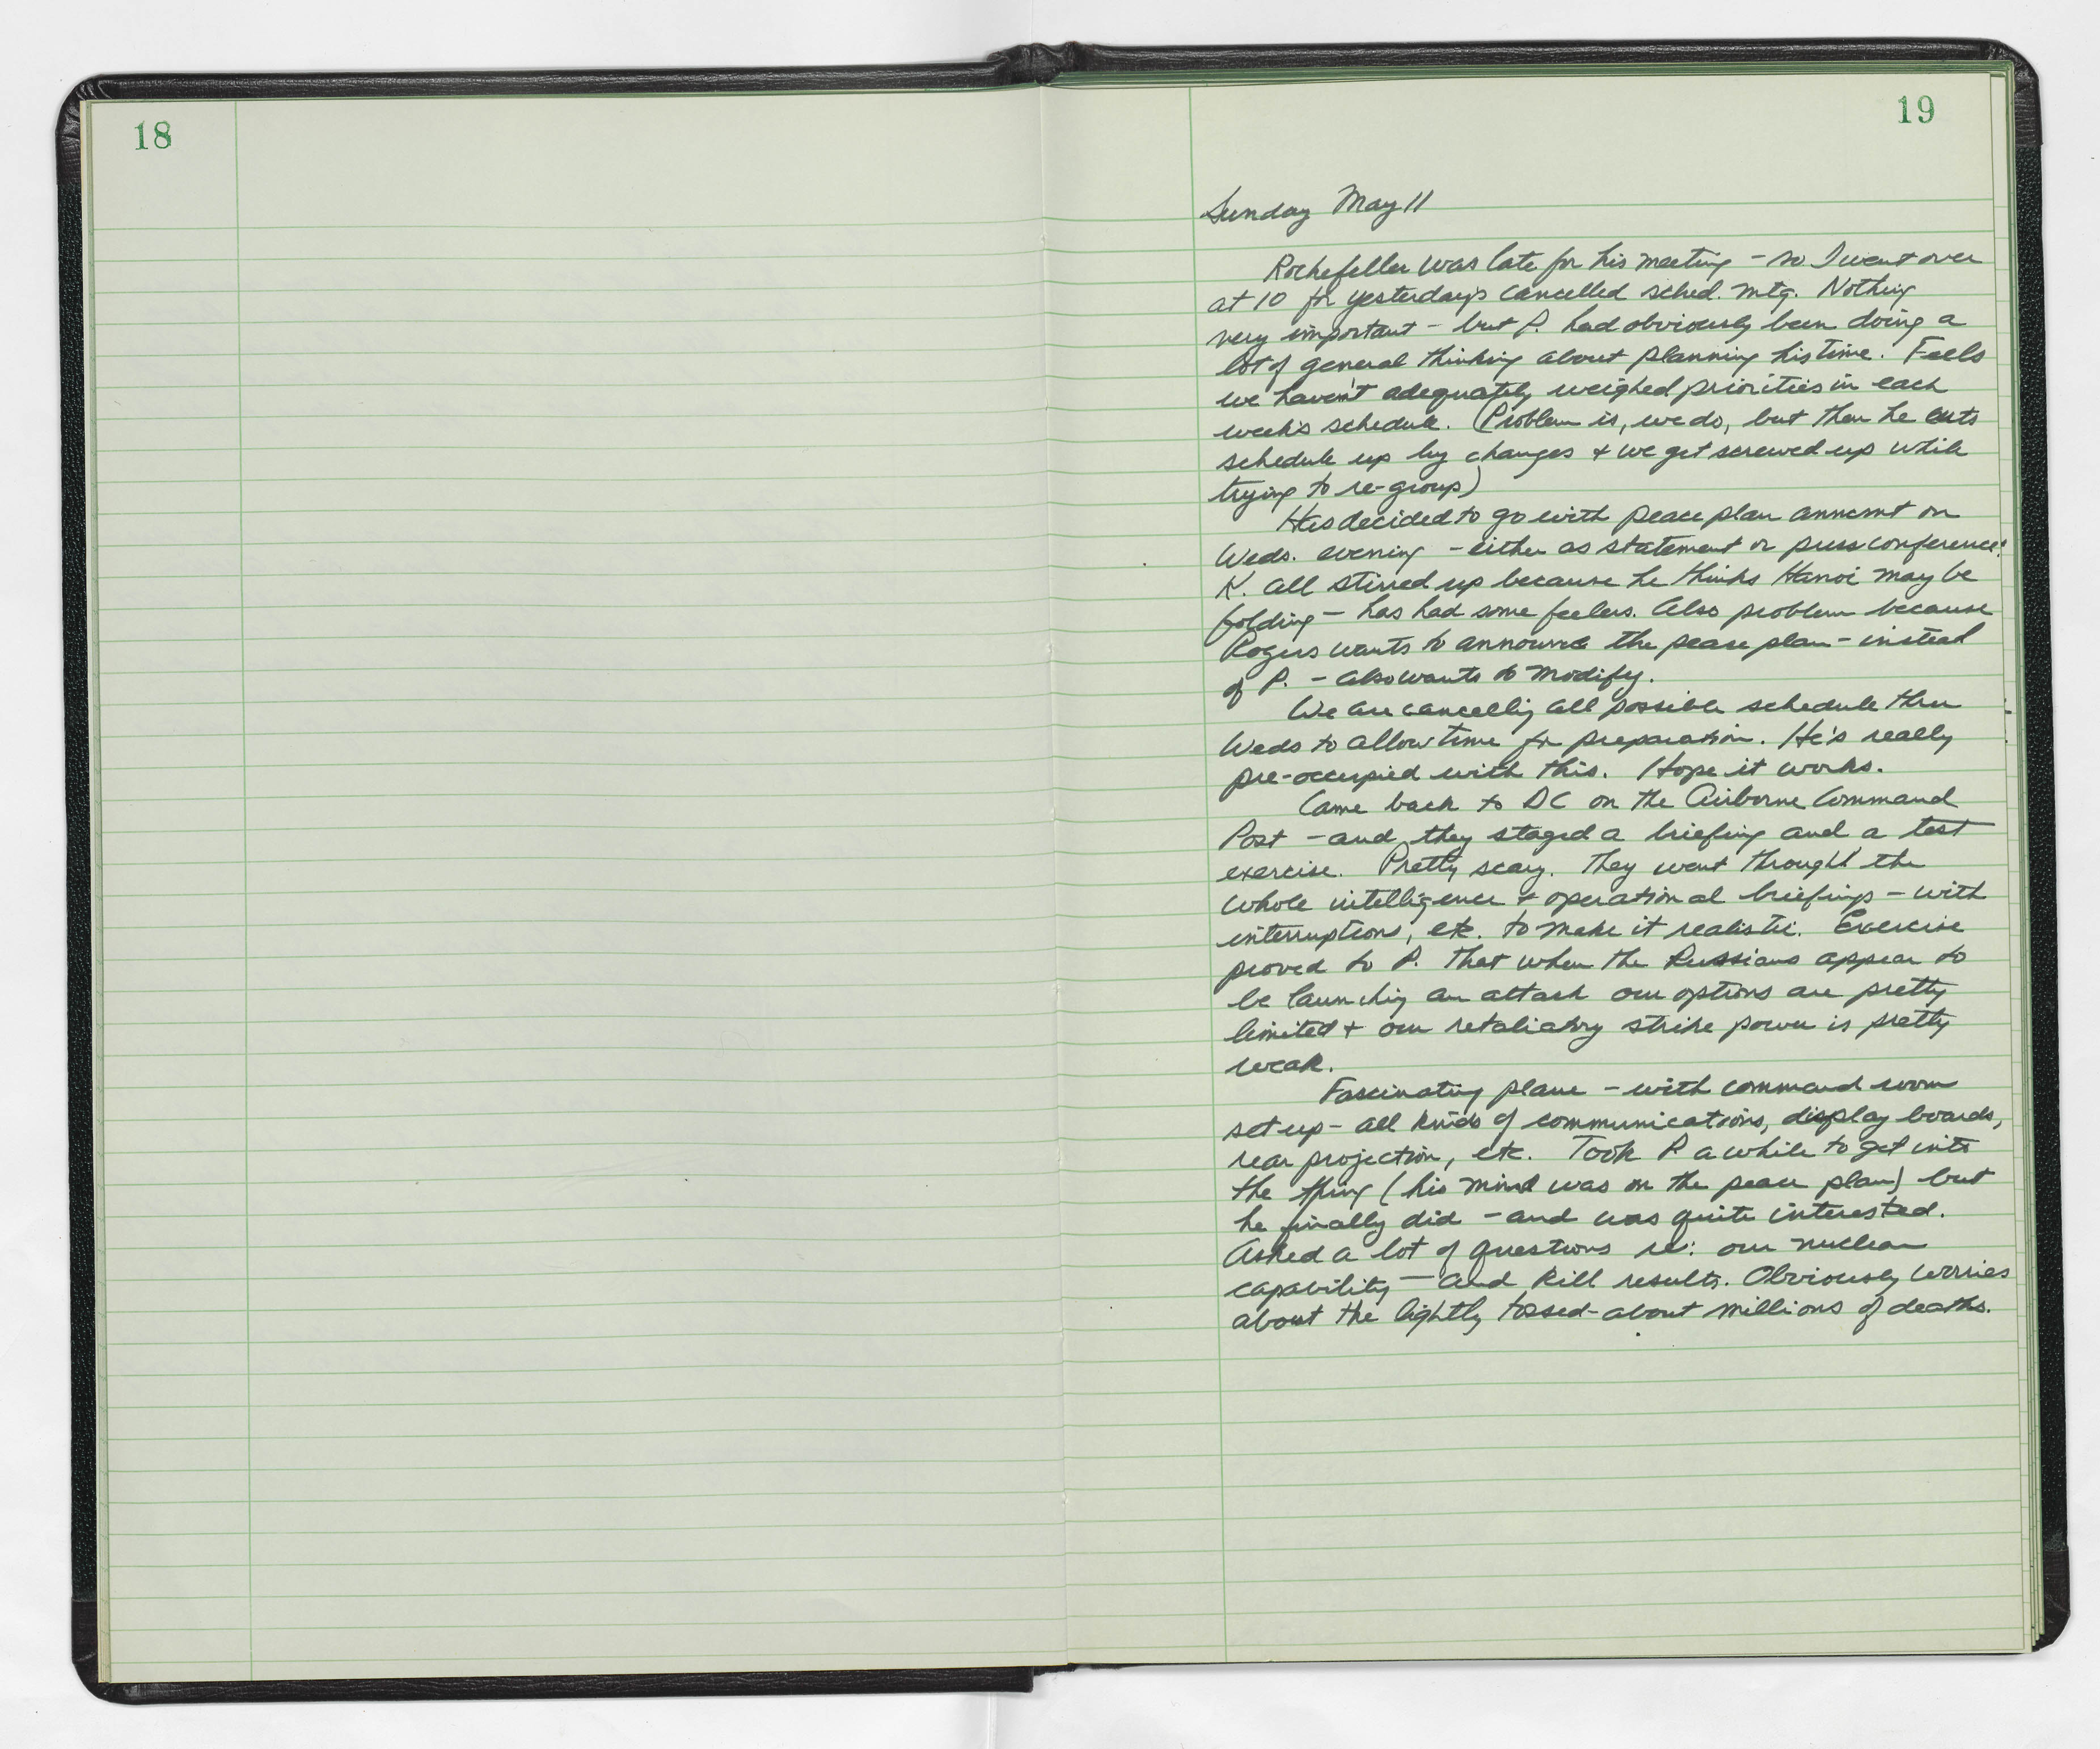 18
19
Sunday May 11
Rockefeller was late for his meeting - so I went over
at 10 for yesterday's cancelled sched. mtg. Nothing
very important - but P. had obviously been doing a
lot of general thinking about planning his time. Feels
we haven't adequately weighed priorities in each
week's schedule. (Problem is, we do, but then he cuts
schedule up by changes + we get screwed up while
trying to re-group)
Has decided to go with peace plan anncmt on
Weds. evening - either as statement or press conference.
K. all stirred up because he thinks Hanoi may be
folding - has had some feelers. Also problem because
Rogers wants to announce the peace plan - instead
of P. - also wants to modify.
We are cancelling all possible schedule thru
Weds to allow time for preparation. He's really
pre-occupied with this. Hope it works.
Came back to DC on the Airborne Command
Post - and they staged a briefing and a test
exercise. Pretty scary. They went through the
whole intelligence + operational briefings - with
interruptions, etc. to make it realistic. Exercise
proved to P. that when the Russians appear to
be launching an attack our options are pretty
limited + our retaliatory strike power is pretty
weak.
Fascinating plane - with command room
set up - all kinds of communications, display boards,
rear projection, etc. Took P a while to get into
the thing (his mind was on the peace plan) but
he finally did - and was quite interested.
Asked a lot of questions re: our nuclear
capability - and kill results. Obviously worries
about the lightly tossed-about millions of deaths.